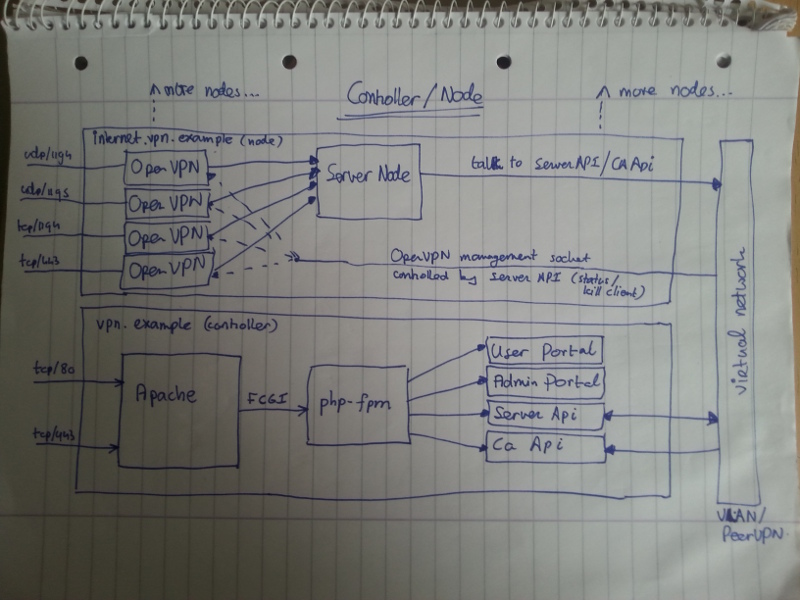 Controller/Node
more nodes...
more nodes...
internet.vpn.example (node)
udp/1194
OpenVPN
udp/1195
OpenVPN
tcp/1194
OpenVPN
tcp/443
OpenVPN
Server Node
talk to serverAPI/CA Api
OpenVPN management socket
controlled by server API (status/
kill client)
vpn.example (controller)
tcp/80
tcp/443
Apache
FCGI
php-fpm
User Portal
Admin Portal
Server Api
Ca Api
virtual network
VLAN/
PeerVPN